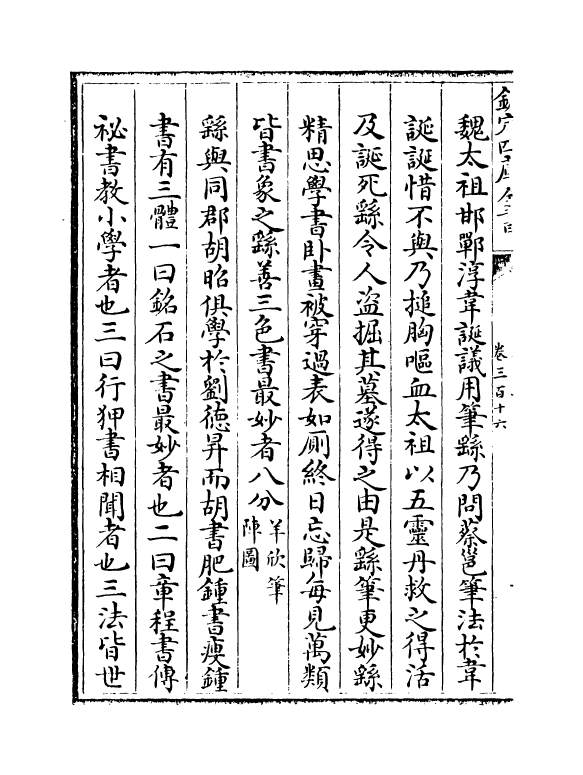 魏太祖邯鄲淳韋誕議用筆繇乃問蔡邕筆法於韋
誕誕惜不與乃搥胸嘔血太祖以五靈丹救之得活
及誕死繇令人盗掘其墓遂得之由是繇筆更妙繇
精思學書卧畫被穿過表如厠終日忘歸每見萬類
皆書象之繇善三色書最妙者八分羊欣筆陣圖
繇與同郡胡昭俱學於劉徳昇而胡書肥鍾書瘦鍾
書有三體一曰銘石之書最妙者也二曰章程書傳
祕書教小學者也三曰行狎書相聞者也三法皆世
卷三百十六